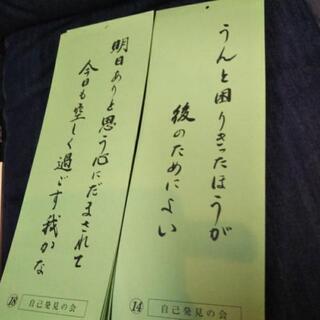 うんと困りきったほうが
後のためによい
⑭ 自己発見の会
明日ありと思う心にだまされて
今日も空しく過ごす我かな
⑱ 自己発見の会